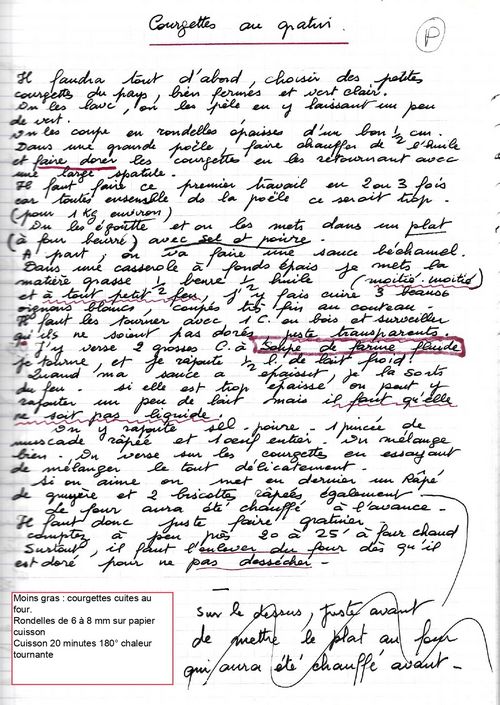 Courgettes au gratin.
P
Il faudra tout d'abord, choisir des petites
courgettes du pays, bien fermes et vert clair.
On les lave, on les pèle en y laissant un peu
de vert.
On les coupe en rondelles épaisses d'un bon ½ cm.
Dans une grande poêle, faire chauffer de l'huile
et faire dorer les courgettes en les retournant avec
une large spatule.
Il faut faire ce premier travail en 2 ou 3 fois
car toutes ensemble ds la poêle ce serait trop.
(pour 1 Kg environ)
On les égoutte et on les mets dans un plat
(à four beurré) avec sel et poivre.
A part, on va faire une sauce béchamel.
Dans une casserole à fonds épais je mets la
matière grasse ½ beurre ½ huile (moitié-moitié)
et à tout petit feu, j'y fais cuire 3 beaux
oignons blancs, coupés très fin au couteau.
Il faut les tourner avec 1 C. en bois et surveiller
qu'ils ne soient pas dorés juste transparents.
J'y verse 2 grosses C. à Soupe de farine fluide
je tourne, et je rajoute ½ l. de lait froid.
Quand ma sauce a épaissit, je la sorts
du feu. si elle est trop épaisse on peut y
rajouter un peu de lait mais il faut qu'elle
ne soit pas liquide.
On y rajoute sel - poivre - 1 pincée de
muscade râpée et 1 oeuf entier. On mélange
bien. On verse sur les courgettes en essayant
de mélanger le tout délicatement.
Si on aime on met en dernier un Râpé
de gruyère et 2 biscottes râpées également.
Le four aura été chauffé à l'avance.
Il faut donc juste faire gratiner.
comptez à peu près 20 à 25' à four chaud
Surtout, il faut l'enlever du four dès qu'il
est doré pour ne pas dessécher -
sur le dessus, juste avant
de mettre le plat au four
qui aura été chauffé avant -
Moins gras : courgettes cuites au
four.
Rondelles de 6 à 8 mm sur papier
cuisson
Cuisson 20 minutes 180° chaleur
tournante